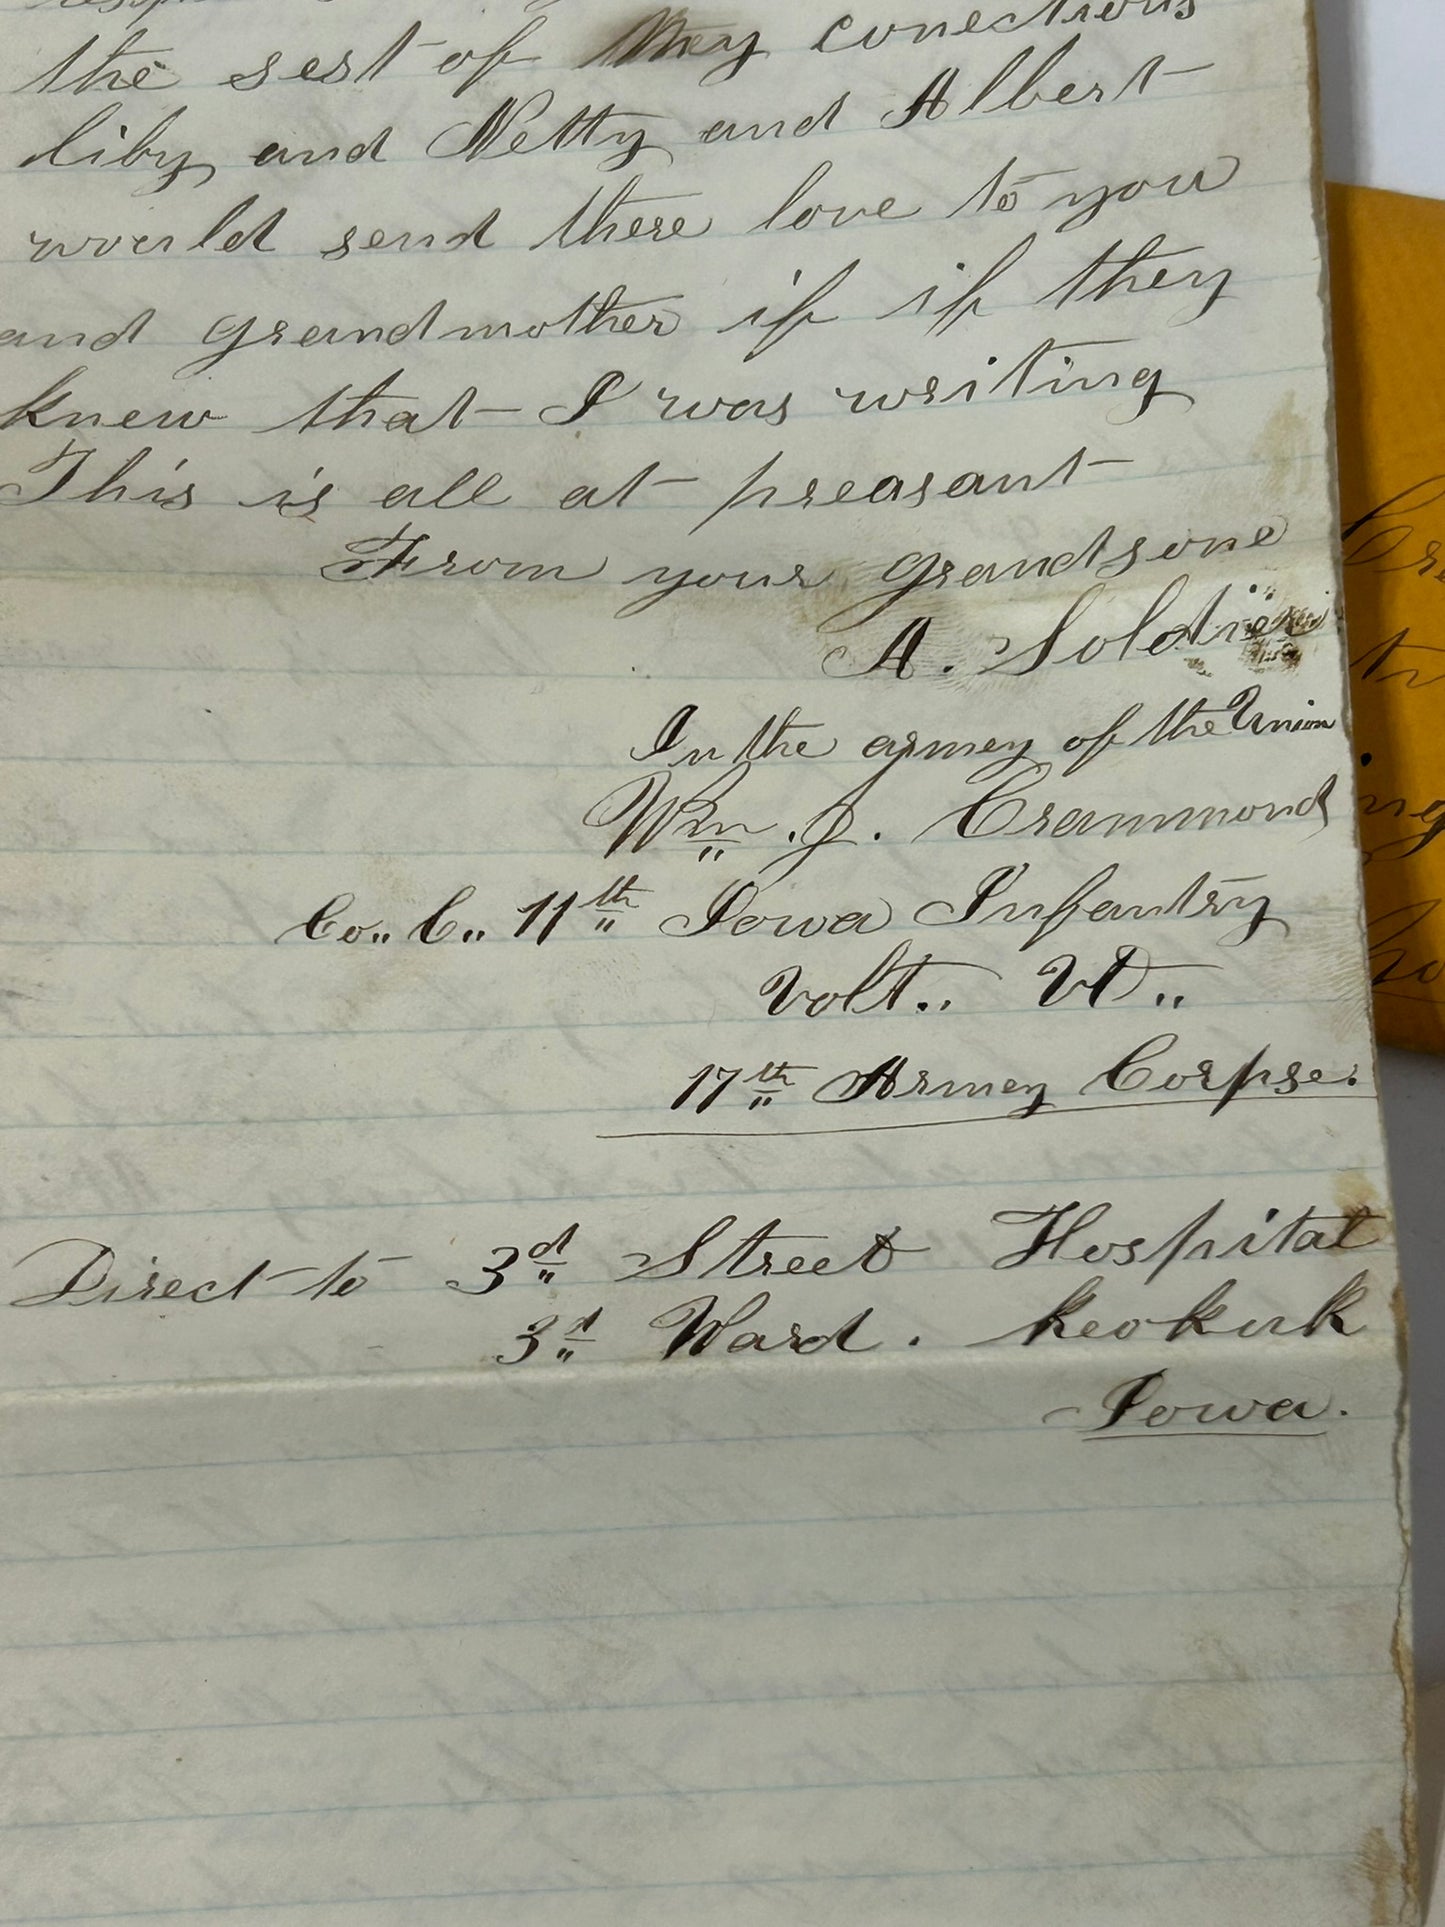 the rest of my conections
liby and Netty and Albert
would send there love to you
and grandmother if if they
knew that I was writing
This is all at preasant
From your grandsone
A. Soldier
In the armey of the Union
Wm. J. Crammond
Co.. C.. 11th Iowa Infantry
Volt.. Vt..
17th Armey Corpse.
Direct to 3d Street Hospital
3d Ward. Keokuk
Iowa.